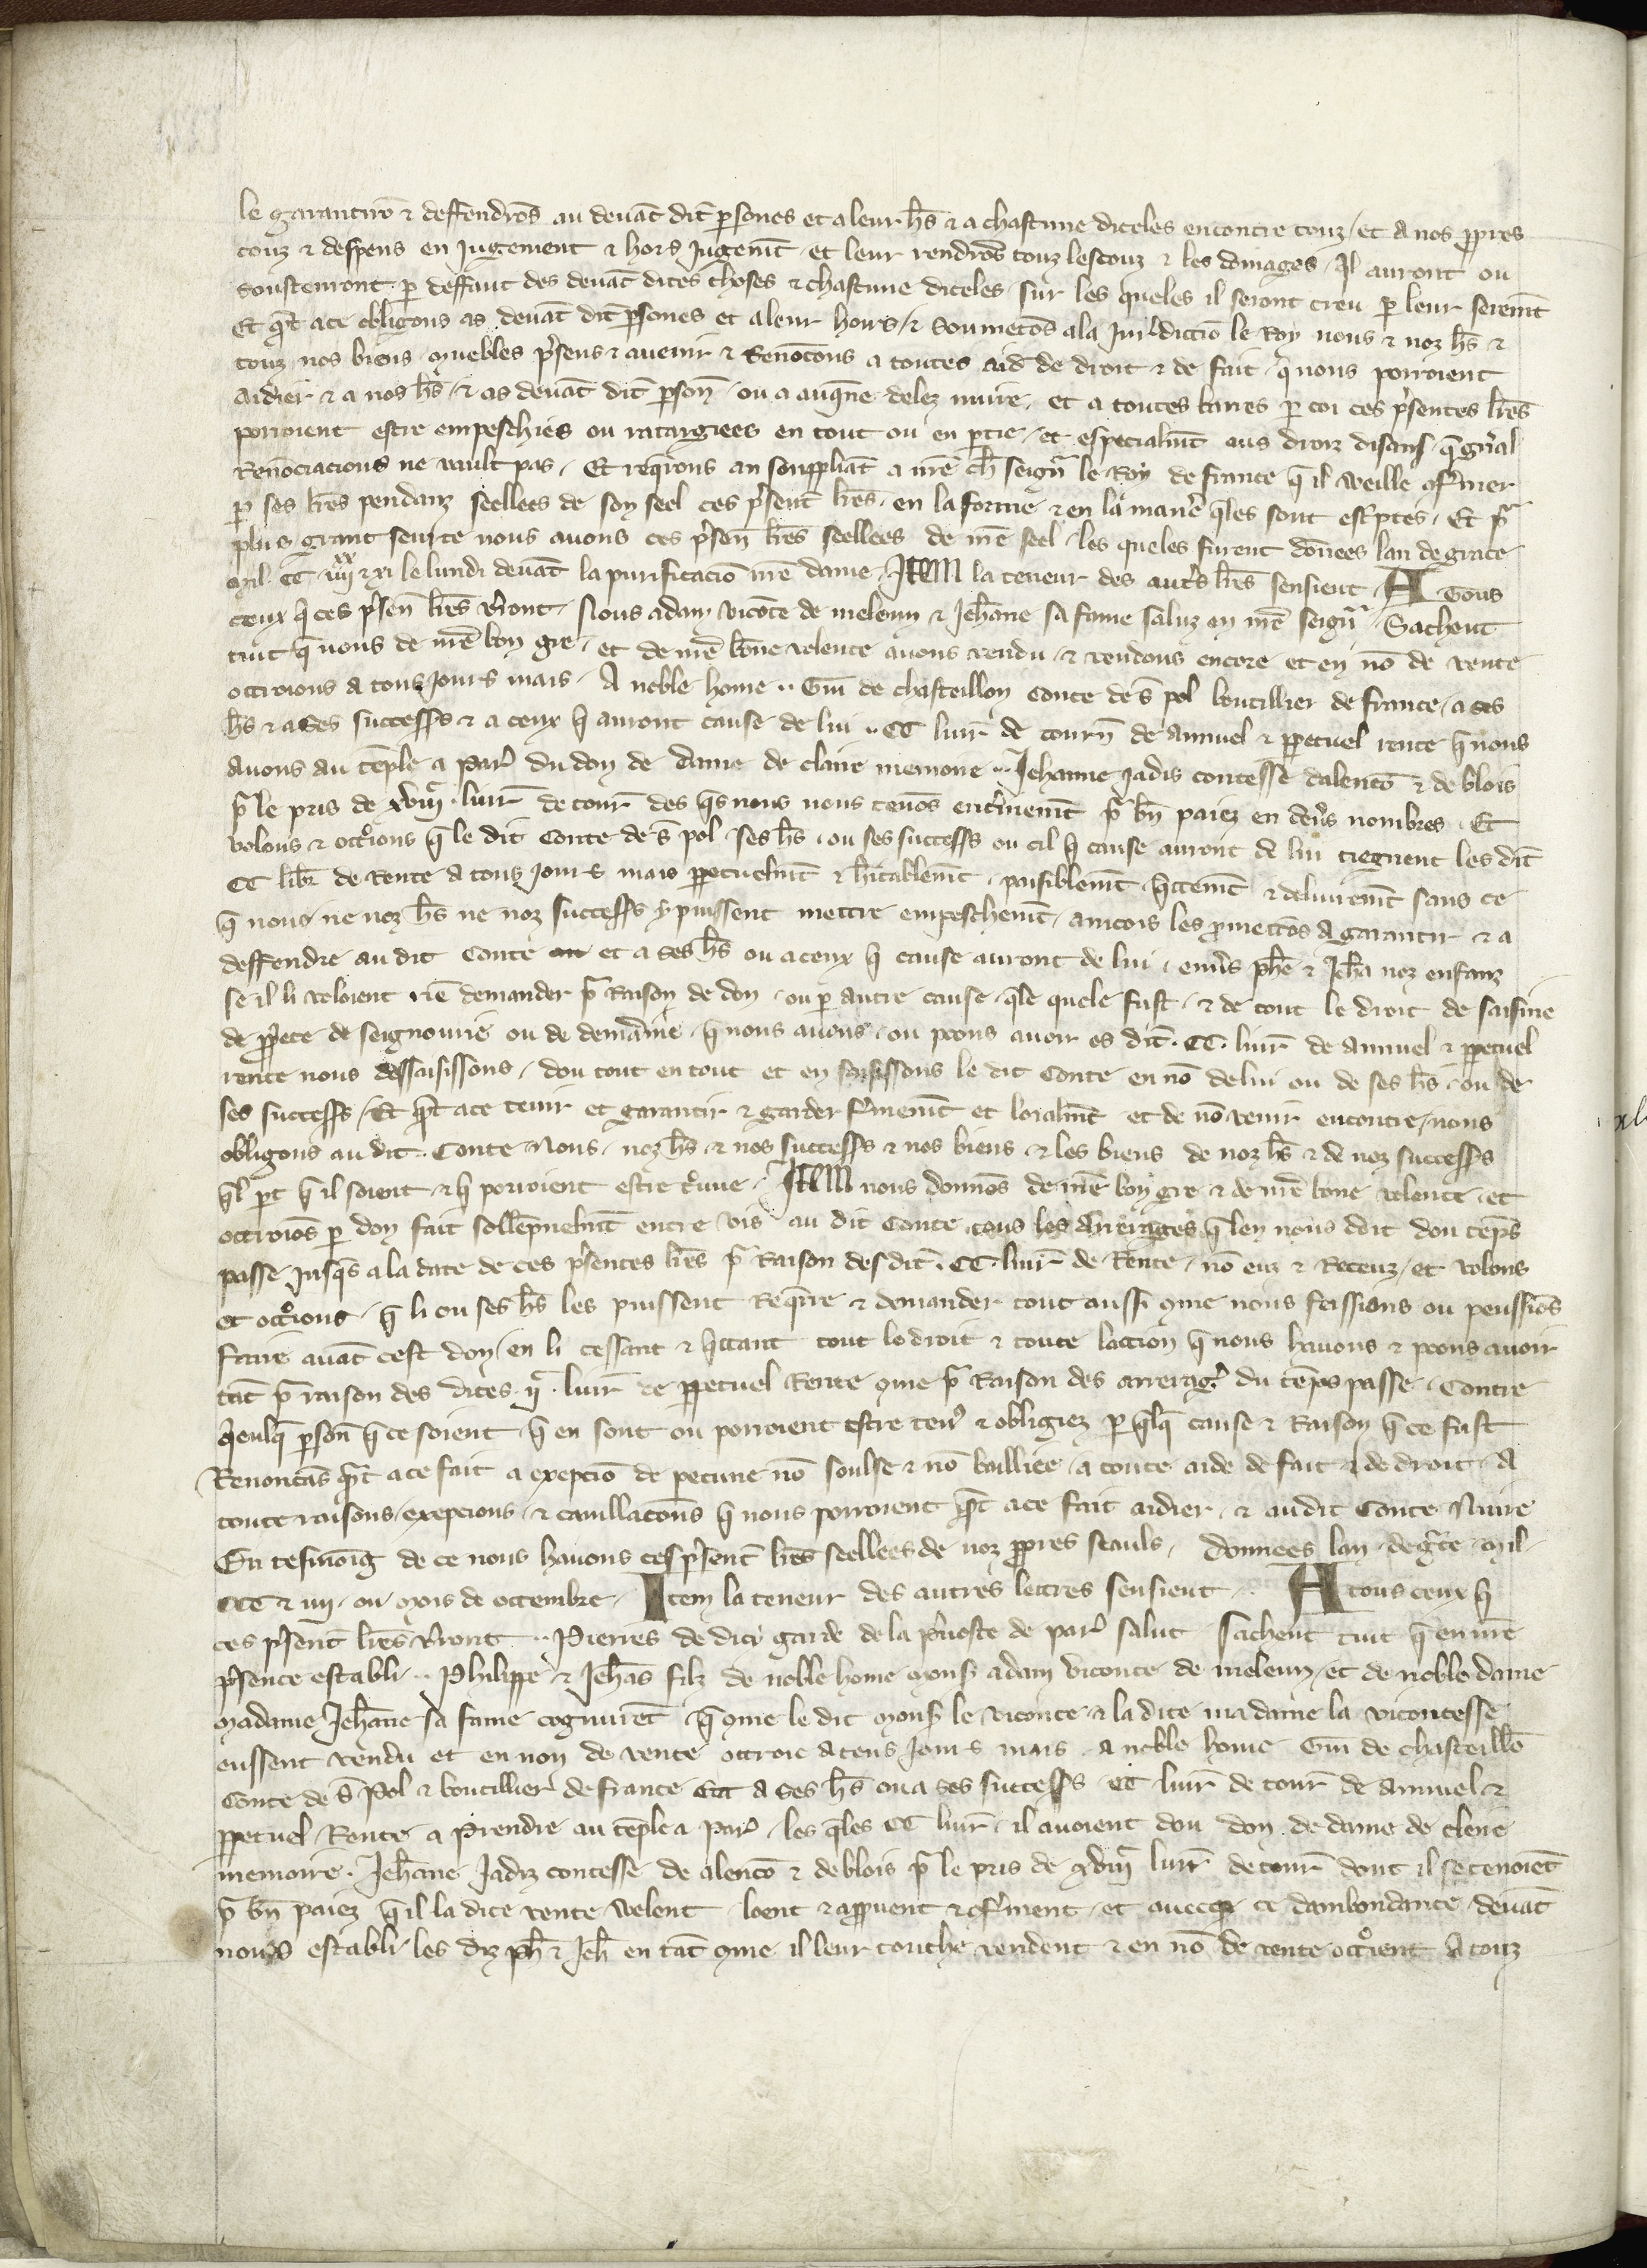 le garantirō ⁊ deffendrōs au devāt dit̄ ꝑsones et a leur hs̄ ⁊ a chascune diceles encontre touz / et a nos ꝓpres
couz ⁊ despens en Jugement ⁊ hors Jugemt̄ et leur rendrōs touz les couz ⁊ les domages / Il auront ou
soustenront ꝑ deffaut des devāt dites choses ⁊ chascune diceles / sur les queles il seront creu ꝑ leur seremt̄
Et qͣt a ce obligons as devāt dit̄ ꝑsones et a leur hoirs / ⁊ soumetōs a la Juridictiō le Roy nous ⁊ noz hs̄ ⁊
touz nos biens muebles p̄sens ⁊ avenir ⁊ Renōcons a toutes aid̄ de droit ⁊ de fait / q̄ nous porroient
aidier ⁊ a nos hs̄ / ⁊ as devāt dit̄ ꝑson̄ ou a auqͣne delez nuire / et a toutes barres ꝑ coi ces p̄sentes lr̄es
porroient estre empeschies ou ratargiees en tout ou en ꝑtie / et especialmt̄ aus droiz disans q̄ gn̄al
Renōciacions ne vault pas / Et req̄rons an soupplīat a nr̄e ch̄ seignͬ le Roy de france q̄ il weille ꝯfmer
ꝑ ses lr̄es pendanz seellees de son seel ces p̄sent̄ lr̄es en la forme ⁊ en la maner̄e q̄les sont esc̄ptes / Et pͬ
plus grant seurte nous avons ces p̄sen̄ lr̄es seellees de nr̄e seel / les queles furent dōnees lan de grace
mil. CC iiij xx ⁊ xi le lundi devāt la purificaciō nr̄e dame / Item la teneur des aut̄s lr̄es sensient / A Tous
ceux q̄ ces p̄sen̄ lr̄es v̄ront / Nous adam vicōte de meleun ⁊ Jehāne sa fame saluz en nr̄e seignͬ / Sachent
tuit q̄ nous de nr̄e bon gre / et de nr̄e bōne volente avons vendu ⁊ vendons encore et en nō de vente
ottroions a touz jours mais / A noble home .. Gui de chasteillon conte de s̄ pol bouteillier de france / a ses
hs̄ ⁊ a ses successs̄ ⁊ a ceux q̄ auront cause de lui .. CC livr̄ de tourn̄ de annuel ⁊ ꝑpetuel rente q̄ nous
avons au tēple a Par̄ du don de Dame de claire memore .. Jehanne jadis contesse dalencō ⁊ de blois
pͬ le pris de xviijͨ livr̄ de tour̄ des q̄s nous nous tenōs ent̄inemt̄ pͬ bn̄ paiez en den̄s nombres / Et
volons ⁊ ottͦions q̄ le dit Conte de s̄ pol ses hs̄ / ou ses successs̄ ou cil q̄ cause auront de lui tiegnent les dit̄
CC libr̄ de rente a touz Jours mais ꝑpetuelmt̄ ⁊ h̄itablemt̄ / paisiblemt̄ q̄ttemt̄ ⁊ delivremt̄ sans ce
q̄ nous ne noz hs̄ ne noz successs̄ y puissent mettre empeschemt̄ / aincois les ꝓmettōs a garantir ⁊ a
deffendre au dit Conte et a ses hs̄ ou a ceux q̄ cause auront de lui / env̄s phē ⁊ Jehā noz enfanz
se il li voloient riē demander pͬ Raison de don / ou ꝑ autre cause q̄le quele fust / ⁊ de tout le droit de saisine
de ꝓp̄ete de seignourie ou de demaine q̄ nous avons / ou pōons avoir es dit̄ . CC . livr̄ de annuel ⁊ ꝑpetuel
rente nous dessaisissons / dou tout en tout et en saisissons le dit Conte en nō de lui ou de ses hs̄ / ou de
ses successs̄ / Et qͣt a ce tenir et garantir ⁊ garder f̄memt̄ et loialmt̄ et de nō venir encontre / nous
obligons au dit Conte Nous / noz hs̄ ⁊ nos successs̄ ⁊ nos biens ⁊ les biens de noz hs̄ ⁊ de noz successs̄
q̄l ꝑt q̄ il soient ⁊ q̄ porroient estre t̄uve / Item nous donnōs de nr̄e bon gre ⁊ de nr̄e bone volente / et
ottroiōs ꝑ don fait sollēpnelmt̄ entre vis au dit Conte tous les Arrerages q̄ len nous doit dou tēps
passe jusq̄s a la date de ces p̄sentes lr̄es pͬ Raison des dit̄ . CC . livr̄ de Rente / nō euz ⁊ Receuz / et volons
et ottͦions / q̄ li ou ses hs̄ les puissent Req̄rre ⁊ demander tout aussi ꝯme nous feissians ou peussiōs
faire avāt cest don / en li cessant ⁊ q̄ttant tout le droit ⁊ toute laction q̄ nous havons ⁊ pōons avoir
tāt pͬ raison des dites ijͨ livr̄ de ꝑpetuel Rente ꝯme pͬ Raison des arreraḡ du tēps passe / Contre
q̄eulq̄ ꝑson̄ q̄ ce soient / q̄ en sont ou porroient estre tenꝰ ⁊ obligiez ꝑ q̄lq̄ cause ⁊ Raison q̄ ce fust
Renoncās qͣt a ce fait a exepciō de pecune nō soulse ⁊ nō bailliee / a toute aide de fait ⁊ de droit / A
toute raisons / exepcions / ⁊ cauillacōns q̄ nous porroient qͣt a ce fait aidier / ⁊ au dit Conte Nuire
En tesmoīg de ce nous havons ces p̄sent̄ lr̄es seellees de noz ꝓpres seauls / donnees lan de gͣce mil
CCC ⁊ iiij / ou moys de octembre / Item la teneur des autres lettres sensient .. A tous ceux q̄
ces p̄sent̄ lr̄es v̄ront .. Pierres de dici garde de la p̄voste de par̄ salut Sachent tuit q̄ en nr̄e
p̄sence establi .. Philippe ⁊ Jehās filz de noble home mons̄ adam viconte de meleun / et de noble dame
madame Jehāne sa fame cognurēt q̄ ꝯme le dit mons̄ le viconte ⁊ la dite madame la vicontesse
eussent vendu et en non de vente ottroie a tous Jours mais / a noble home Gui de chasteillō
Conte de s̄ Pol ⁊ bouteillier de france a ses hs̄ ou a ses successs̄ CC livr̄ de tour̄ de annuel ⁊
ꝑpetuel Rente a prendre au tēple a Par̄ / les q̄les CC livr̄ / il avoient dou don de dame de clere
memoire . Jehāne Jadiz contesse de alencō ⁊ de blois pͬ le pris de xviijͨ livr̄ de tour̄ dont il se tenoiēt
pͬ bn̄ paiez q̄ il la dite vente welent loent ⁊ appͮuent ⁊ ꝯf̄ment / et avecq̄s ce dambondance / devāt
nous establi / les diz ph̄ ⁊ Jeh̄ en tāt ꝯme il leur touche vendent ⁊ en nō de vente ottͦient A touz